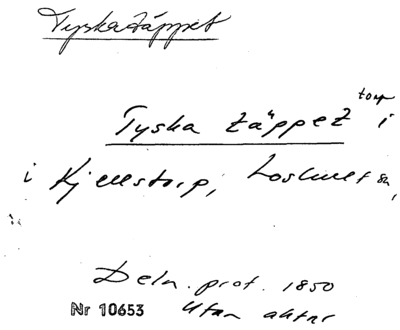 Tyskatäppet
Tyska täppet torp i
i Kjellstorp, Loshult sn,
Deln. prot. 1850
Nr 10653 Utan aktnr